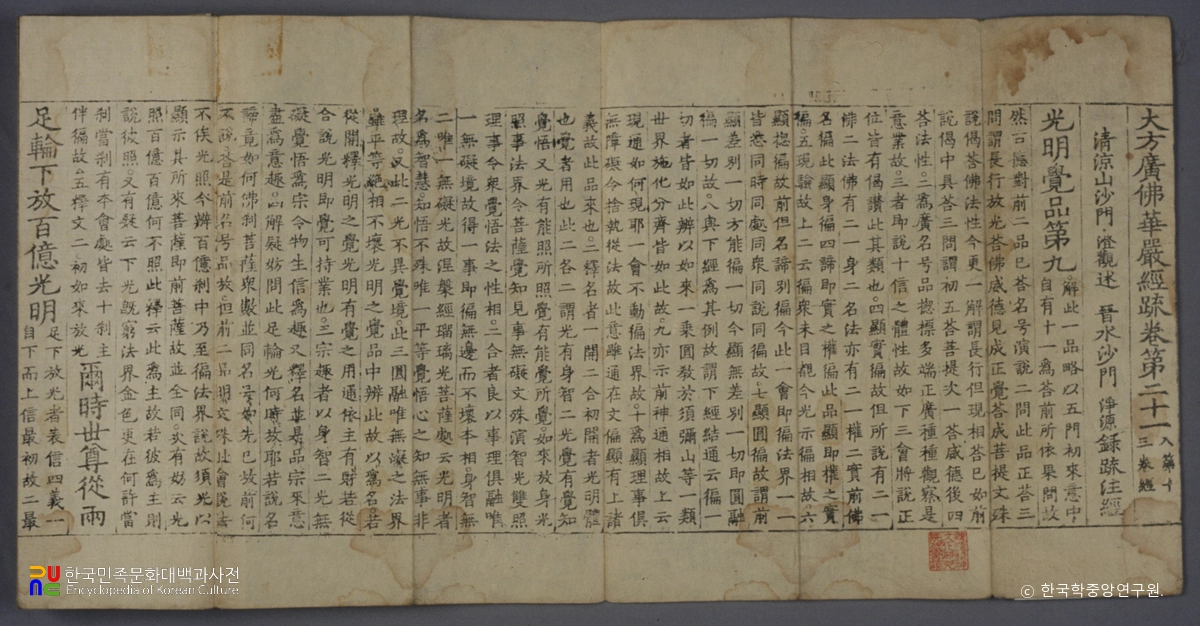 大方廣佛華嚴經疏卷第二十一 入第十三卷經
清涼山沙門 澄觀述 晋水沙門 淨源録疏注經
光明覺品第九 解此一品略以五門初來意中自有十一為荅前所依果問故
然言隱對前二品已荅名号演說二問此品正荅三
問謂長行放光荅佛威德見成正覺荅成菩提文殊
說偈荅佛法性今更一解謂長行但現相荅已如前
說偈中具荅三問謂初五荅菩提次一荅威德後四
荅法性二為廣名号品揔標多端正廣種種觀察是
意業故三者即說十信之體性故如下三會將說正
位皆有偈讚此其類也四顯實徧故但所說有二一
佛二法佛有二一身二名法亦有二一權二實前佛
名徧此顯身徧四諦即實之權徧此品顯即權之實
徧五現驗故上二云徧衆未目覩今光示徧相故六
顯揔徧故前但名諦別徧今此一會即徧法界一一
皆悉同時同處同衆同說同徧故七顯圓徧故謂前
顯差別一切方能徧一切今顯無差別一切即圓融
徧一切故八與下經為其例故謂下經結通云徧一
切者皆如此辨以如來一乘圓教於須彌山等一類
世界施化分齊皆如此故九亦示前神通相故上云
現通如何現耶一會不動徧法界故十為顯理事俱
無障礙令捨執從法故此意雖通在文偏顯有上諸
義故此品來也二釋名者一開二合初開者光明體
也覺者用也此二各二謂光有身智二光覺有覺知
覺悟又光有能照所照覺有能覺所覺如來放身光
照事法界令菩薩覺知見事無礙文殊演智光雙照
理事令衆覺悟法之性相二合者良以事理俱融唯
一無礙境故得一事即徧無邊而不壞本相身智無
二唯一無礙光故涅槃經瑠璃光菩薩處云光明者
名為智慧知悟不殊唯一平等覺悟心之知無事非
理故又此二光不異覺境此三圓融唯無礙之法界
雖平等絕相不壞光明之覺品中辨此故以為名若
從開釋光明之覺光明有覺之用通依主有財若從
合說光明即覺可持業也三宗趣者以身智二光無
礙覺悟為宗令物生信為趣又釋名並是品宗來意
盡為意趣四解疑妨問此足輪光何時放耶若說名
諦竟如何佛刹菩薩衆數並同名号如先已放前何
不說荅是前名号品放但前二品明文殊此會說法
不俟光照今辨百億刹中乃至徧法界說故須光以
顯示其所來菩薩即前菩薩故並全同次有妨云光
照百億百億何不照此釋云此為主故若彼為主則
說彼照又有疑云下光旣窮法界金色更在何許當
刹當刹有本會處皆去十刹主
伴徧故五釋文二初如來放光 爾時世尊從兩
足輪下放百億光明 足下放光者表信四義一自下而上信最初故二最
한국민족문화대백과사전
Encyclopedia of Korean Culture
ⓒ 한국학중앙연구원.